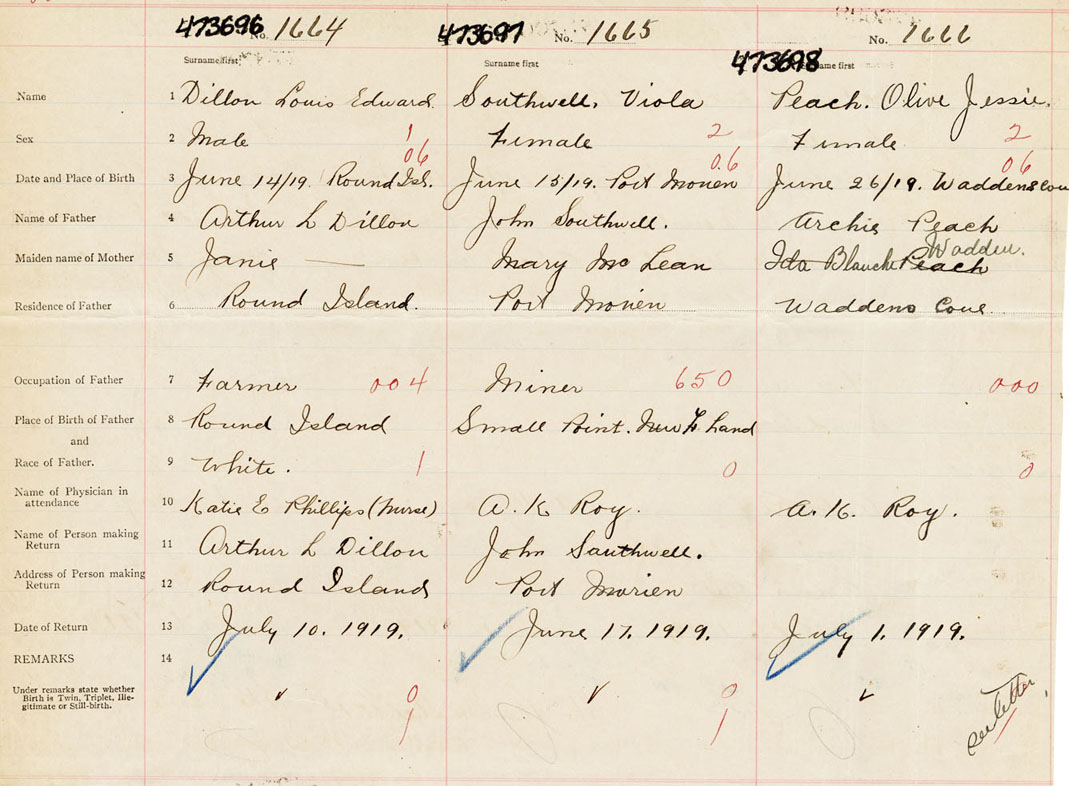 473696 No. 1664 473697 No. 1665 No. 1666
Surname first Surname first 473698 Surname first
Name 1 Dillon Louis Edward. Southwell, Viola Peach. Olive Jessie.
Sex 2 Male 1 Female 2 Female 2
06 06 06
Date and Place of Birth 3 June 14/19. Round Isl. June 15/19. Port Morien June 26/19. Waddens Cou
Name of Father 4 Arthur L Dillon John Southwell. Archie Peach
Wadden.
Maiden name of Mother 5 Janie — Mary McLean Ida Blanche Peach
Residence of Father 6 Round Island. Port Morien Waddens Cove
Occupation of Father 7 Farmer 004 Miner 650 000
Place of Birth of Father 8 Round Island Small Point. New F land
and
Race of Father. 9 White. 1 0 0
Name of Physician in
attendance 10 Katie E Phillips (Nurse) A. K Roy. A. K. Roy.
Name of Person making
Return 11 Arthur L Dillon John Southwell.
Address of Person making
Return 12 Round Island Port Morien
Date of Return 13 July 10. 1919. June 17. 1919. July 1. 1919.
REMARKS 14
Under remarks state whether
Birth is Twin, Triplet, Ille-
gitimate or Still-birth.
0 0
1 1 1
see letter